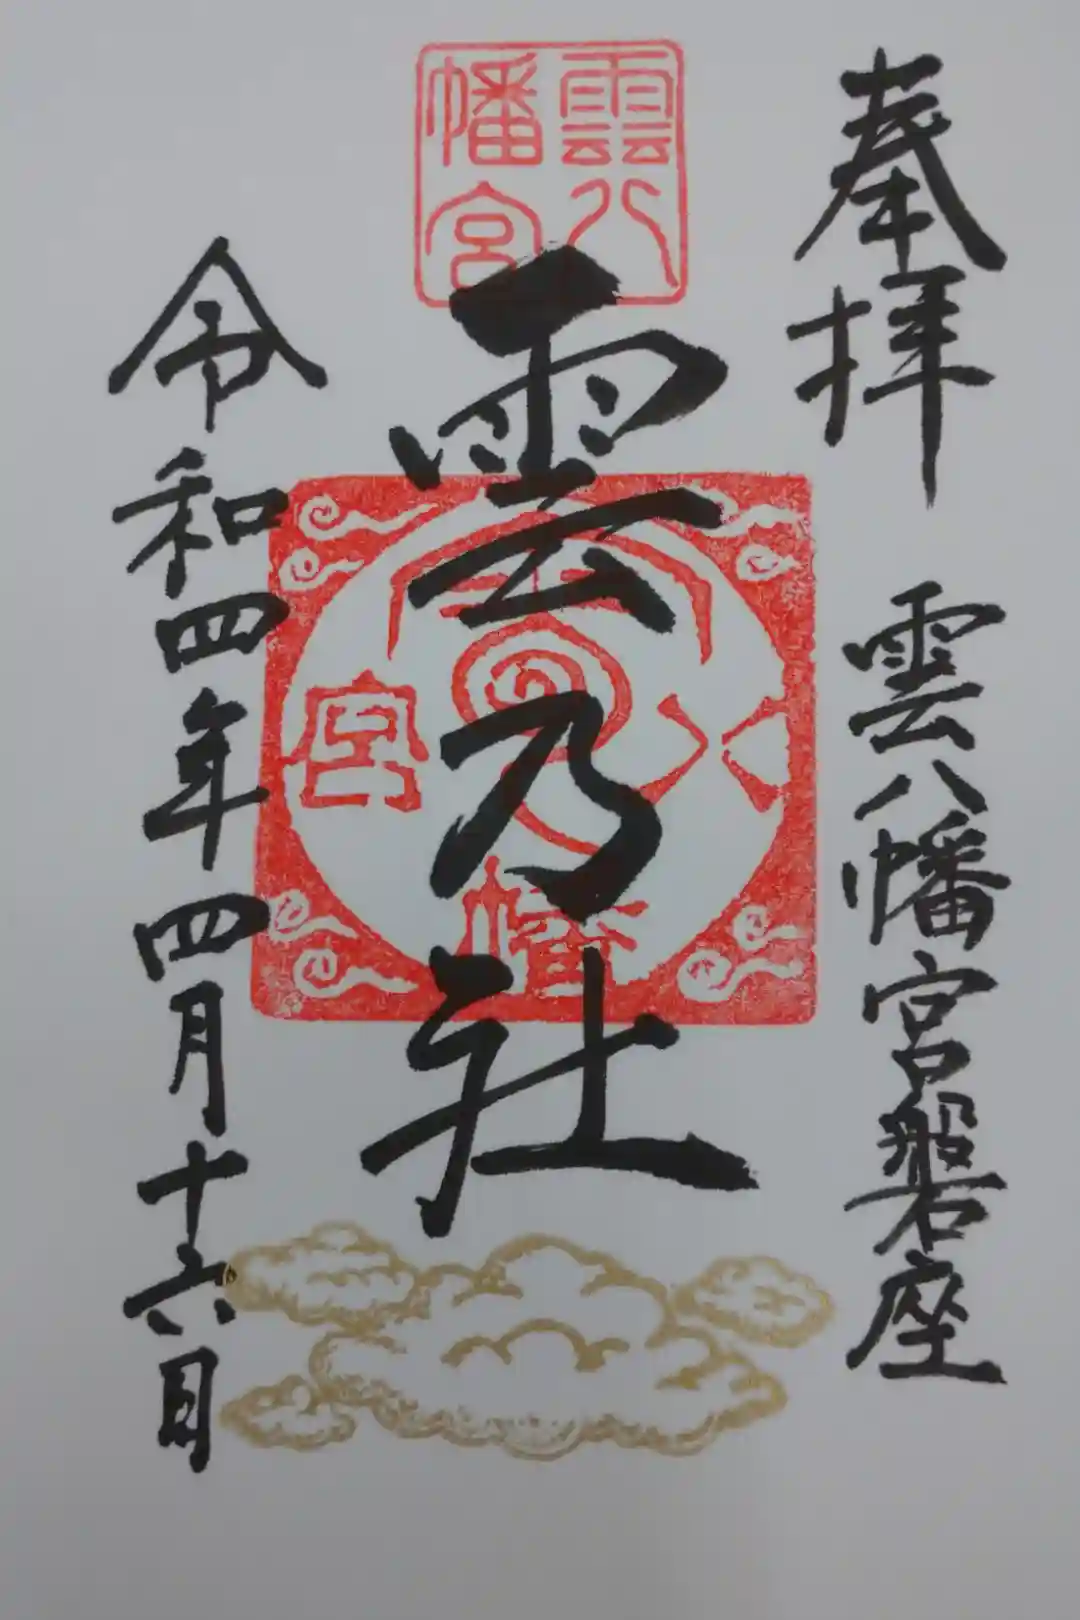 奉拝 雲八幡宮磐座
雲八
幡宮
雲乃社
雲八幡宮
令和四年四月十六日